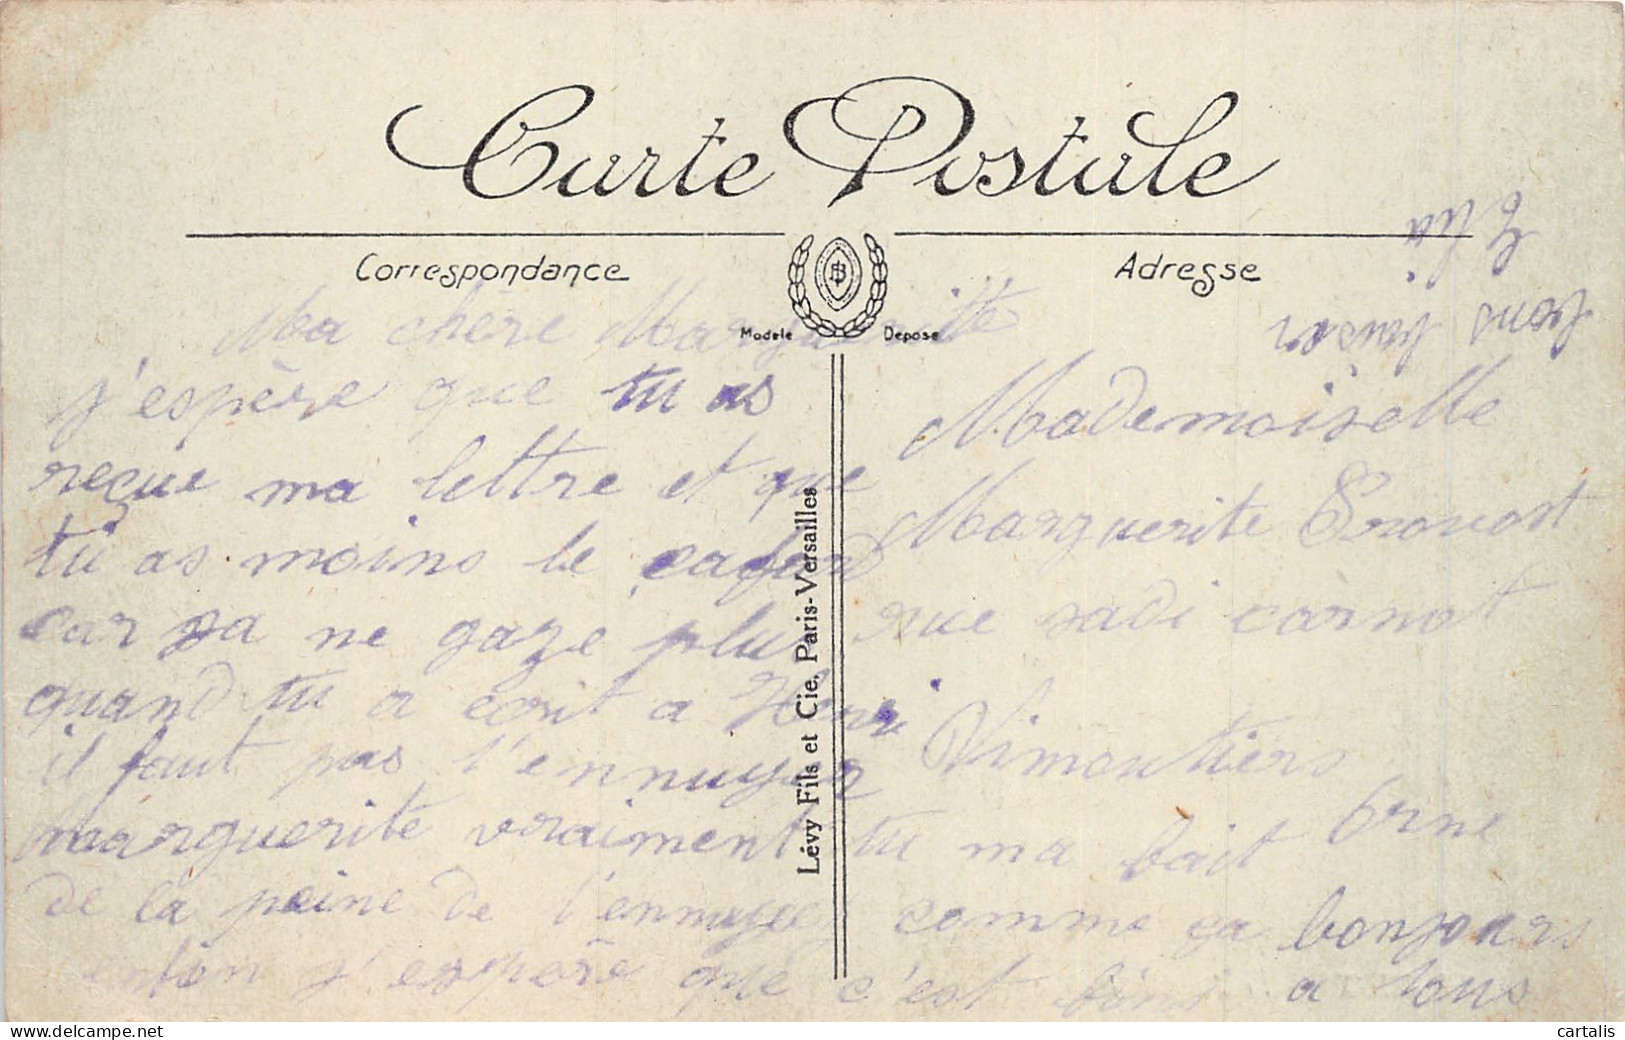 Carte Postale
Correspondance
Adresse
Modèle Déposé
Ma chère Marguerite
j'espère que tu as
reçue ma lettre et que
tu as moins le cafard
car sa ne gaze plus
quand tu a ecrit a Henri
il faut pas t'ennuyer
marguerite vraiment tu ma fait
de la peine de t'ennuyer comme ça
enfin j'espère que c'est fini
bonjours
a tous
Mademoiselle
Marguerite Provost
rue sadi carnot
Vimoutiers
Orne
Lévy Fils et Cie, Paris-Versailles
cartalis